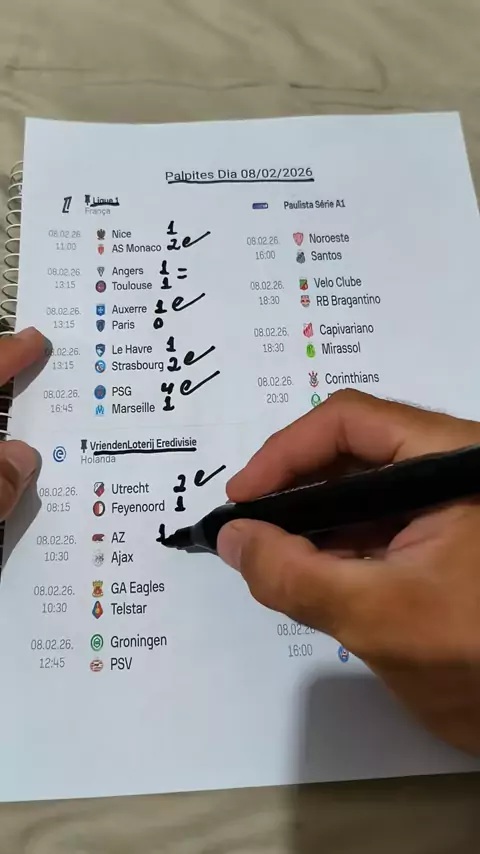 Palpites Dia 08/02/2026
Ligue 1
França
08.02.26 Nice 1
11:00 AS Monaco 2
08.02.26 Angers 1 =
13:15 Toulouse 1
08.02.26. Auxerre 1
13:15 Paris 0
08.02.26. Le Havre 1
13:15 Strasbourg 2
08.02.26. PSG 4
16:45 Marseille 1
VriendenLoterij Eredivisie
Holanda
08.02.26. Utrecht 2
08:15 Feyenoord 1
08.02.26. AZ 1
10:30 Ajax
08.02.26. GA Eagles
10:30 Telstar
08.02.26. Groningen
12:45 PSV
Paulista Série A1
08.02.26. Noroeste
16:00 Santos
08.02.26. Velo Clube
18:30 RB Bragantino
08.02.26. Capivariano
18:30 Mirassol
08.02.26. Corinthians
20:30
08.02.26
16:00